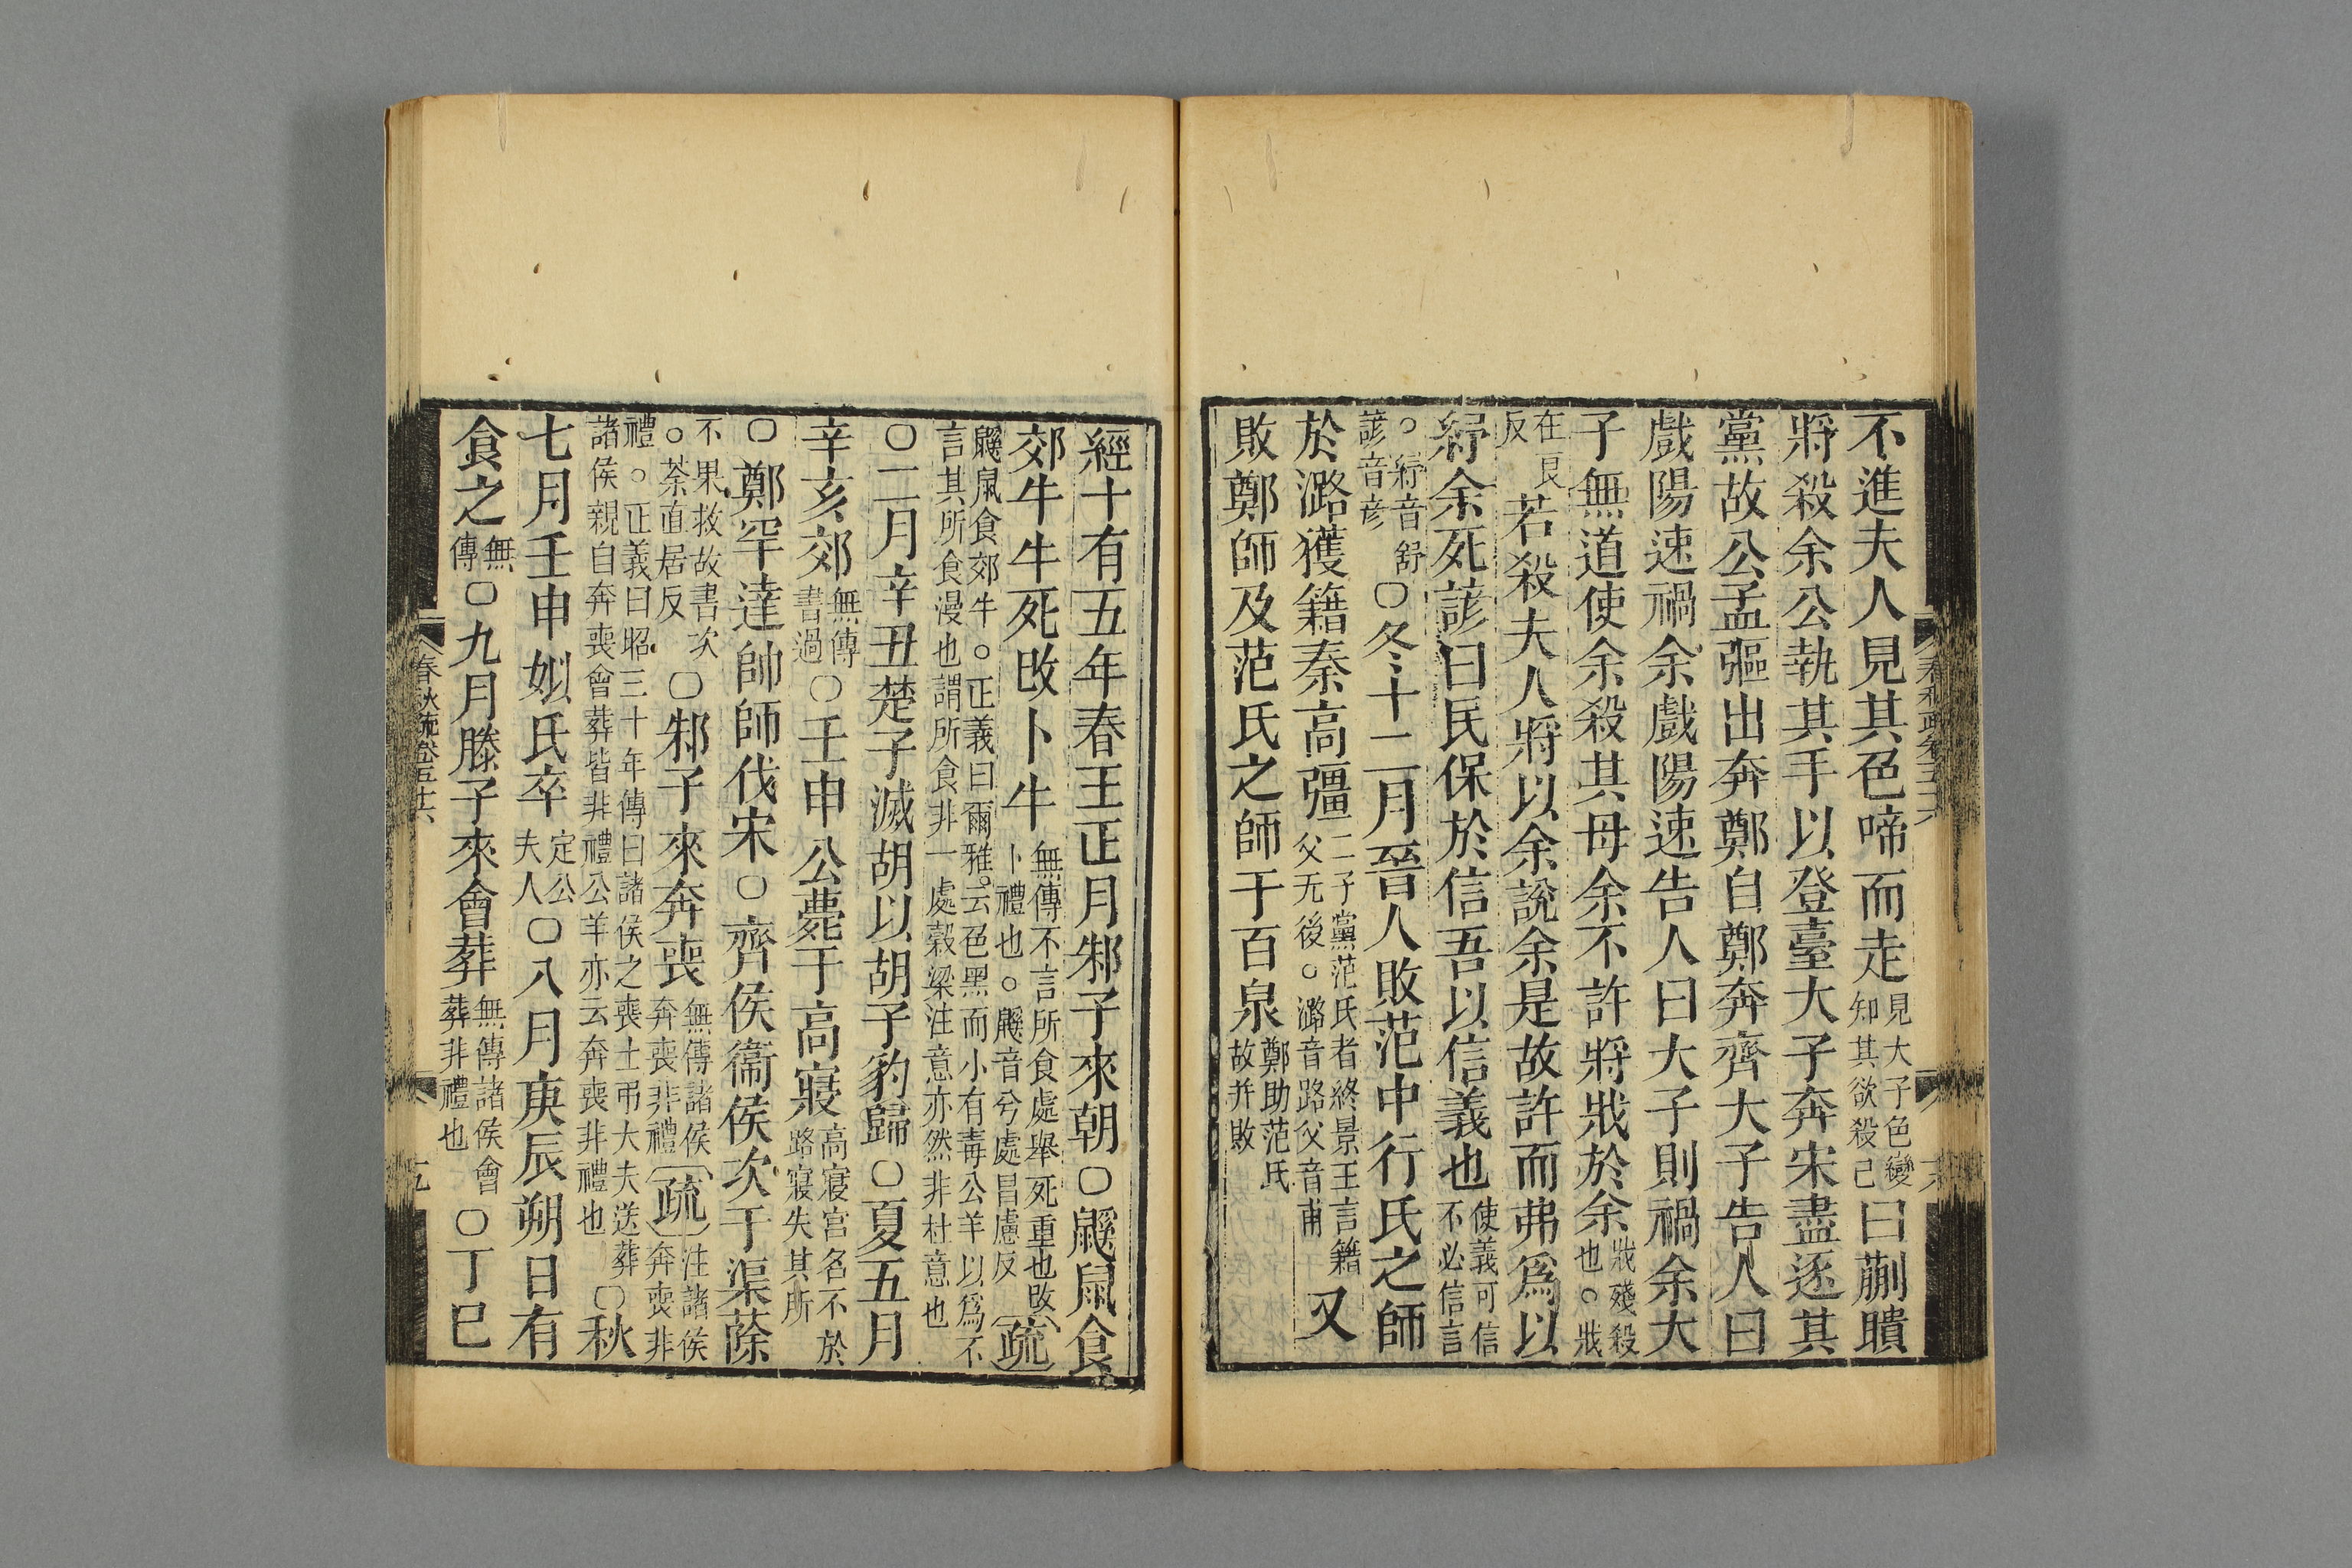 不進夫人見其色啼而走見大子色變知其欲殺己曰蒯聵
將殺余公執其手以登臺大子奔宋盡逐其
黨故公孟彄出奔鄭自鄭奔齊大子告人曰
戲陽速禍余戲陽速告人曰大子則禍余大
子無道使余殺其母余不許將戕於余戕殘殺也○戕
在良反若殺夫人將以余說余是故許而弗爲以
紓余死諺曰民保於信吾以信義也使義可信不必信言
○紓音舒諺音彦○冬十二月晉人敗范中行氏之師
於潞獲籍秦高彊二子黨范氏者終景王言籍父无後○潞音路父音甫又
敗鄭師及范氏之師于百泉鄭助范氏故并敗
經十有五年春王正月邾子來朝○鼷鼠食
郊牛牛死改卜牛無傳不言所食處舉死重也改卜禮也○鼷音兮處昌慮反疏
鼷鼠食郊牛○正義曰爾雅云色黑而小有毒公羊以爲不言其所食漫也謂所食非一處榖梁注意亦然非杜意也
○二月辛丑楚子滅胡以胡子豹歸○夏五月
辛亥郊無傳書過○壬申公薨于高寢高寢宮名不於路寢失其所
○鄭罕達帥師伐宋○齊侯衞侯次于渠蒢
不果救故書次○蒢直居反○邾子來奔喪無傳諸侯奔喪非禮疏注諸侯奔喪非
禮○正義曰昭三十年傳曰諸侯之喪士弔大夫送葬諸侯親自奔喪會葬皆非禮公羊亦云奔喪非禮也○秋
七月壬申姒氏卒定公夫人○八月庚辰朔日有
食之無傳○九月滕子來會葬無傳諸侯會葬非禮也○丁巳
春秋疏卷五十六